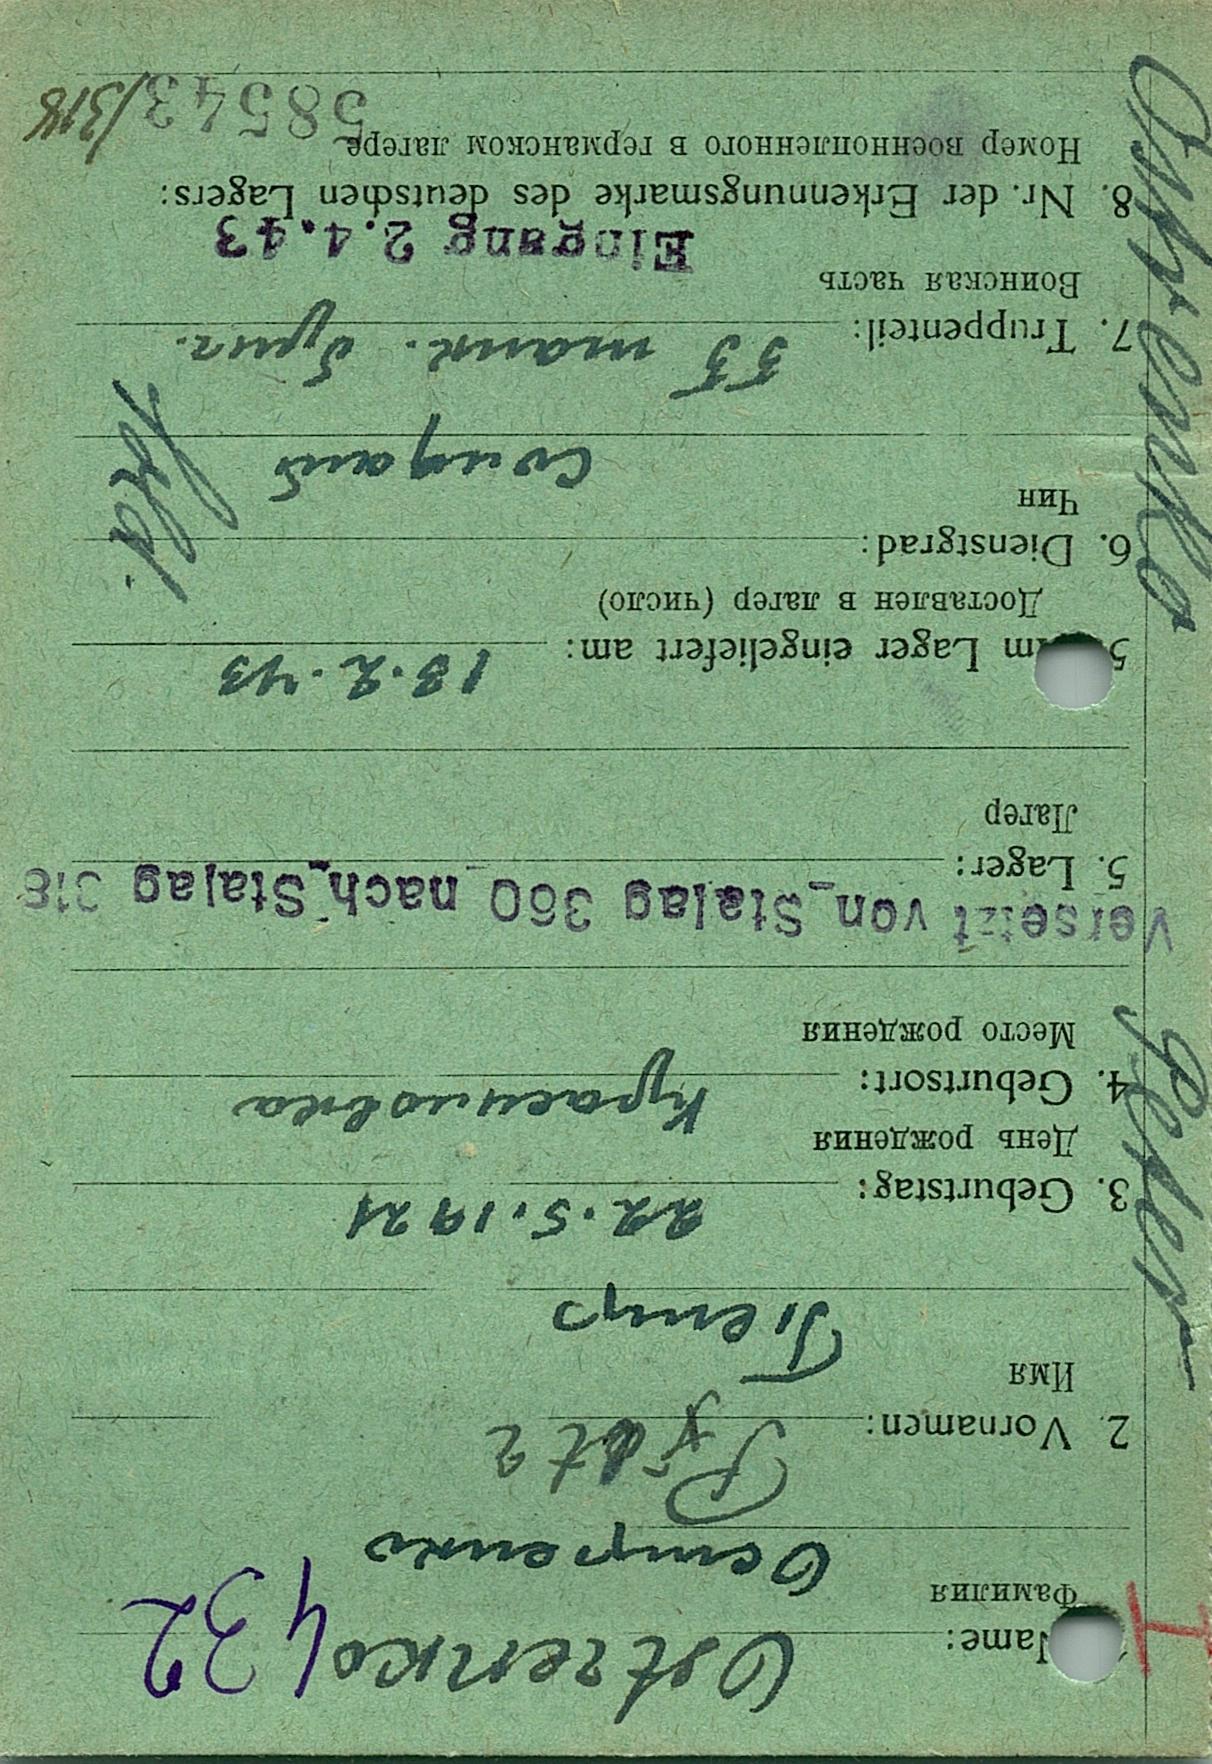 Ostrenko
Peter
1. Name: Ostrenko 432
Фамилия
Остренко
2. Vornamen:
Имя
Петро
3. Geburtstag: 22.5.1921
День рождения
4. Geburtsort: Красиловка
Место рождения
Versetzt von Stalag 360 nach Stalag 318
5. Lager:
Лагер
5. Im Lager eingeliefert am: 18.2.43
Доставлен в лагер (число)
6. Dienstgrad:
Чин
солдат
Sold.
7. Truppenteil: 55 танк. бриг.
Воинская часть
Eingang 2.4.43
8. Nr. der Erkennungsmarke des deutschen Lagers:
Номер военнопленного в германском лагере
58543/318